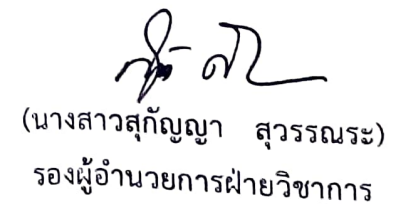 (นางสาวสุกัญญา สุวรรณระ)
รองผู้อำนวยการฝ่ายวิชาการ